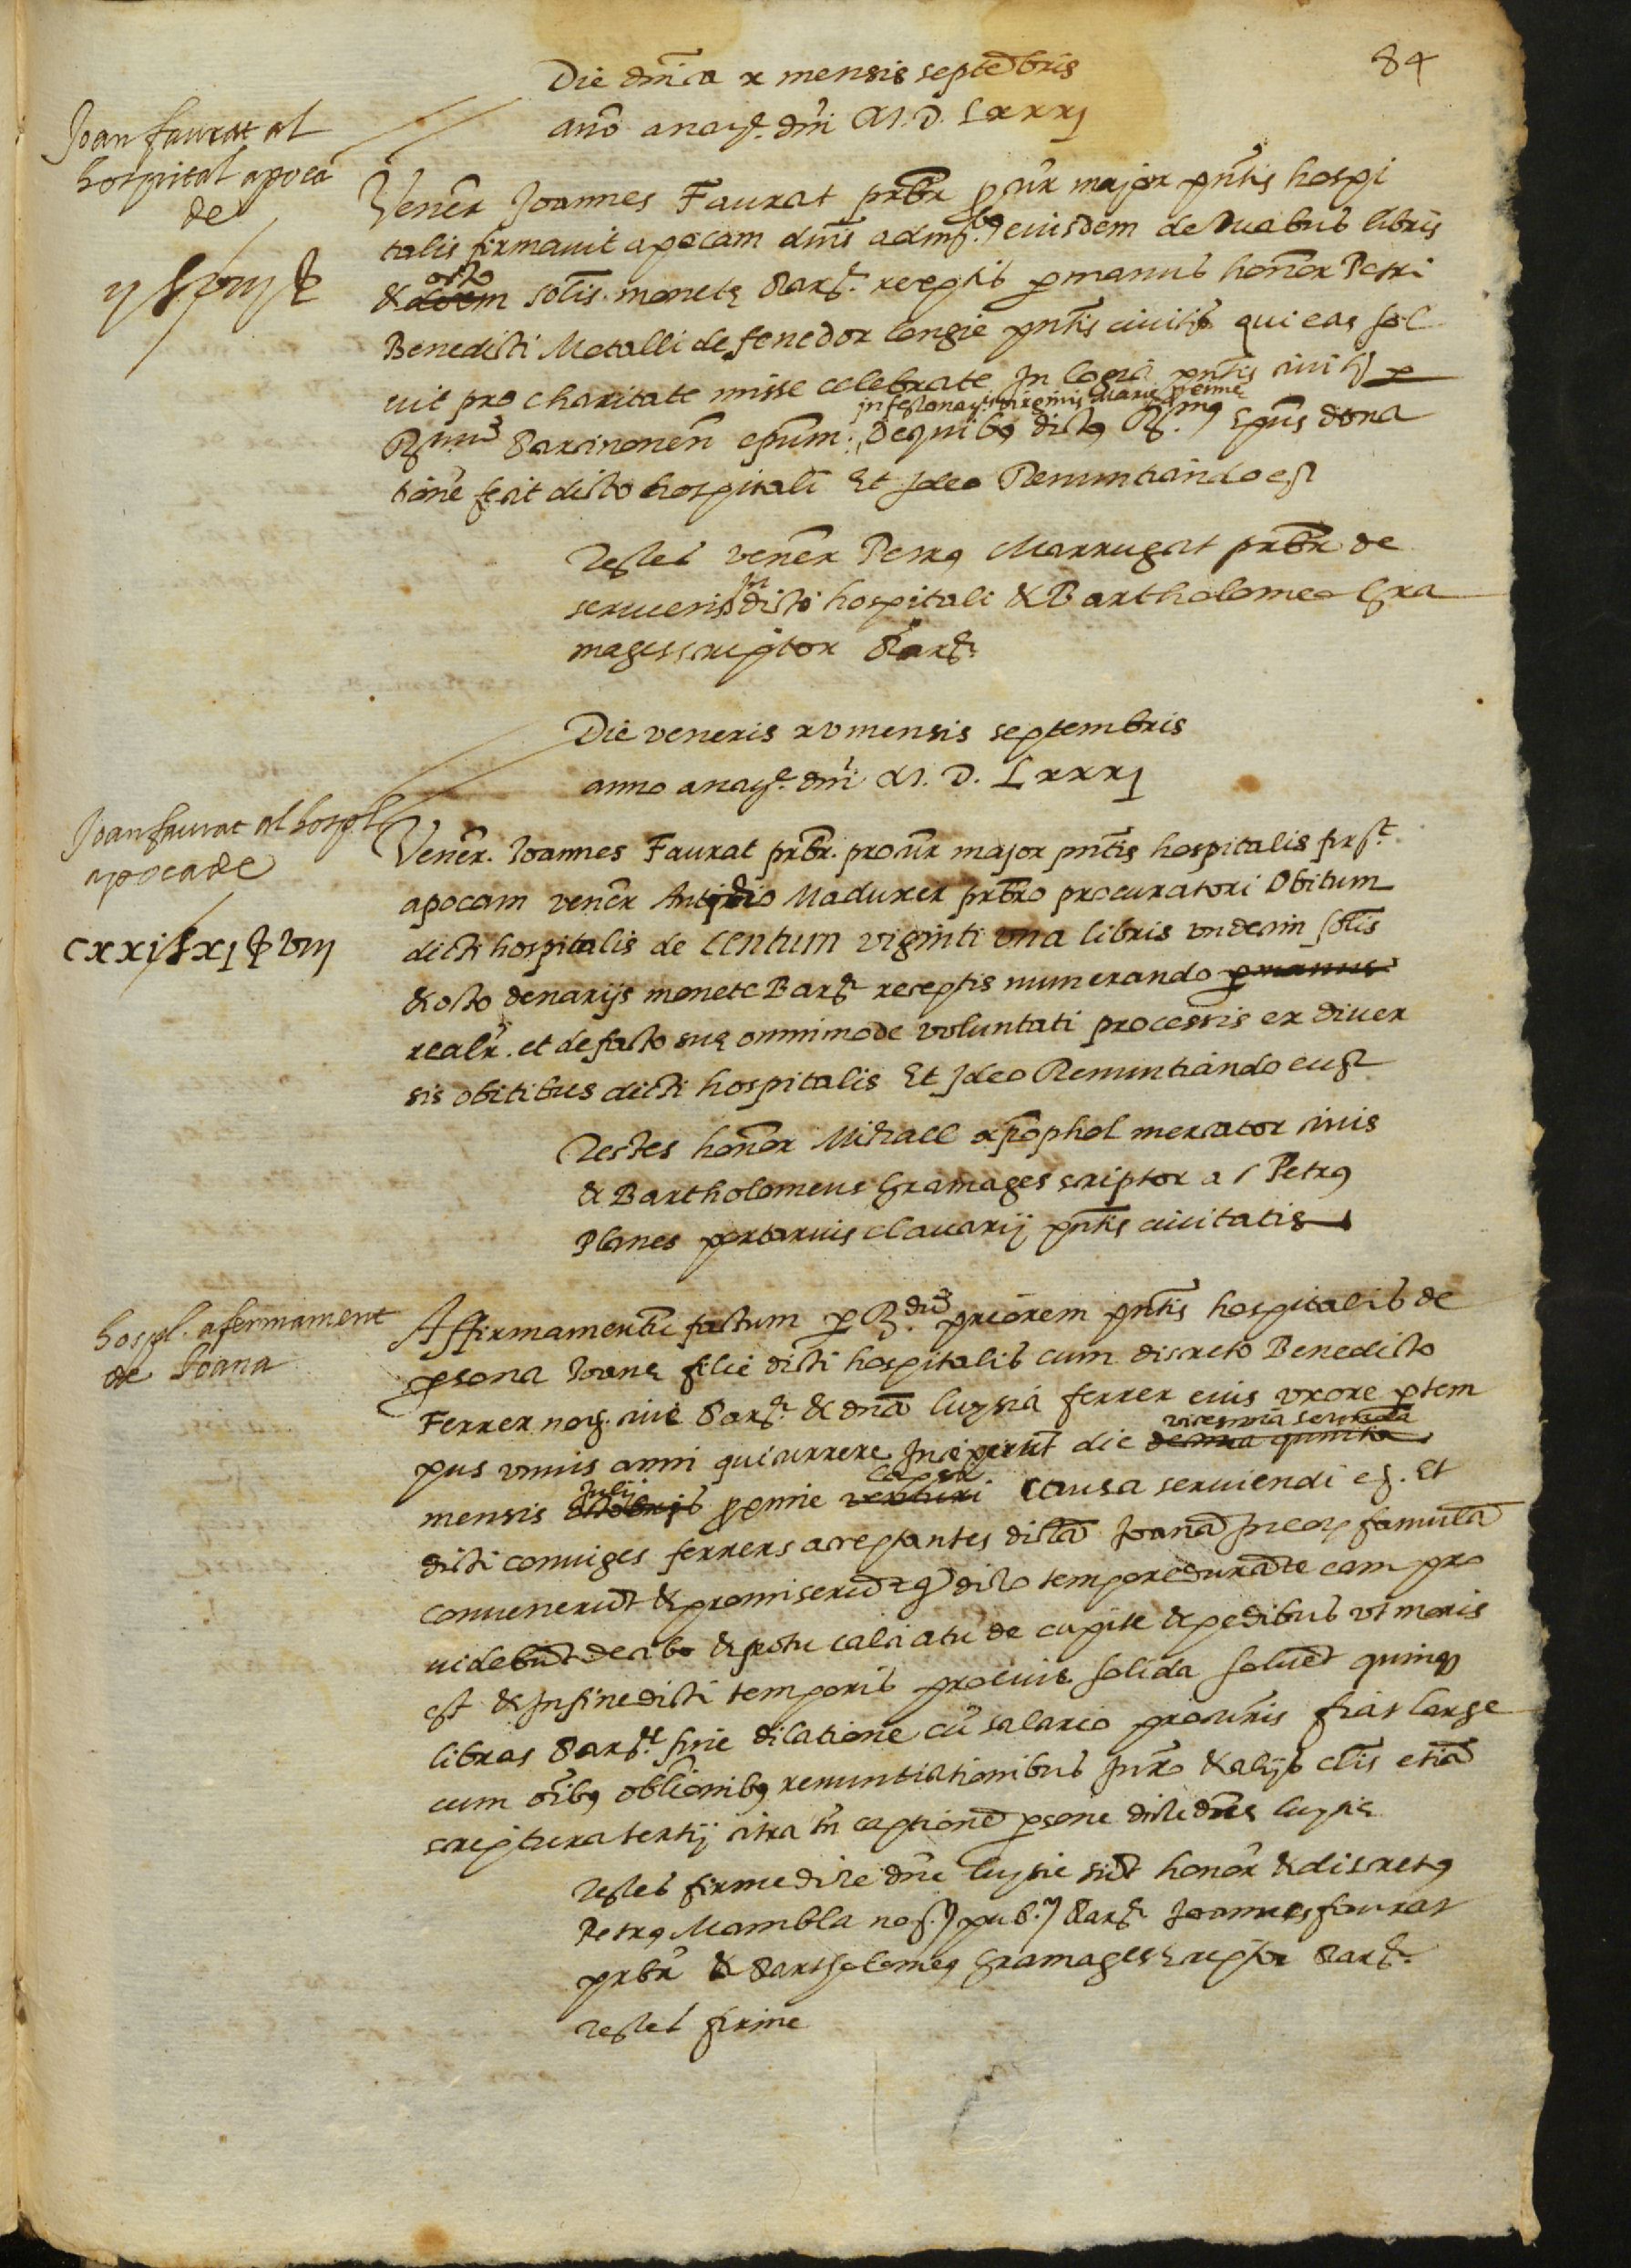 84
Die dnica x mensis septēbris
ano a natte dni M. D. Lxxxj
Joan faurat al
hospital apoca
de
ij ₤ viij ẞ
Venēr Joannes Faurat prbr prour major pntis hospi
talis firmavit apocam dnis admrbs eiusdem de duabus libris
& octo solis monetę Barñe receptis p manus honor Petri
Benedicti Metalli defenedor longie pntis civitis qui eas sol
vit pro charitate misse celebrate In logia pntis civitis p
in festo natis virginis Marie preime
Rmū Barcinonen epum. De quibus dictus Rmus Epus dona
tione fecit dicto hospitali Et Ideo Renuntiando est
Testes vener Petrus Marrugat prbr de
serviens in dicto hospitali & Bartholomeo Gra
mages scriptor Barñe
Die veneris xv mensis septembris
anno a natte dni M. D. Lxxxj
Joan faurat al hospl
apoca de
cxxi ₤ xj ẞ viij
Venēr. Joannes Faurat prbr. prour major pntis hospitalis firt
apocam venēr Antidio Madurer prbro procuratori Obitum
dicti hospitalis de centum viginti una libris undecim solis
& octo denarijs monete Barñe receptis numerando p manus
realr. et de facto suę omnimode voluntati processis ex diver
sis obitibus dicti hospitalis Et Ideo Renuntiando eust
Testes honor Michael xpophol mercator civis
& Bartholomeus Gramages scriptor ac Petrus
Planes portarius clavarij pntis civitatis
hospl. afermament
de Joana
Affirmamentū factum p Rdū priorem pntis hospitalis de
psona Joanę filie dicti hospitalis cum discreto Benedicto
Ferrer not. cive Barñe & dna luysia ferrer eius uxore p tem
pus unius anni qui currere Inceperūt die decima quinta vicesima secunda
mensis octobris Julij proxime venturi lapsi causa serviendi et. Et
dicti conuiges ferrers aceptantes dictā Joanā In eorum famulā
convenerūt & promiserūt q dicto tempore durāte eam pro
videbūt de cibo & potu calciatu de capite & pedibus ut moris
est & In fine dicti temporis pro eius solida solvēt quinq
libras Barñe sine dilatione cū salario procuris fiat large
cum oibus oblionibus renuntiationibus Juro & alijs clis etiā
scriptura tertij citra tn captionē psone dicte dne luysie
Testes firme dicte dne luysie sūt honor & discretus
Petrus Mambla not. pub. Barñe Joannes faurat
prbr & Bartholomeus Gramages scriptor Barñe
Testes firme